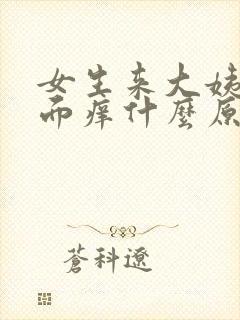 女生来大姨
而痒什麼原
蒼科遼